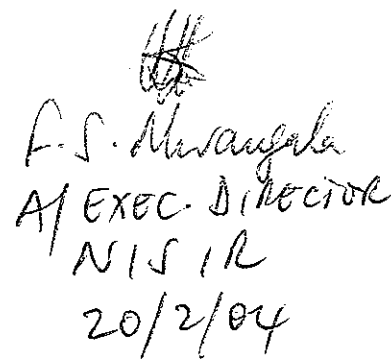 F. S. Mwangala
A/ EXEC. DIRECTOR
NISIR
20/2/04